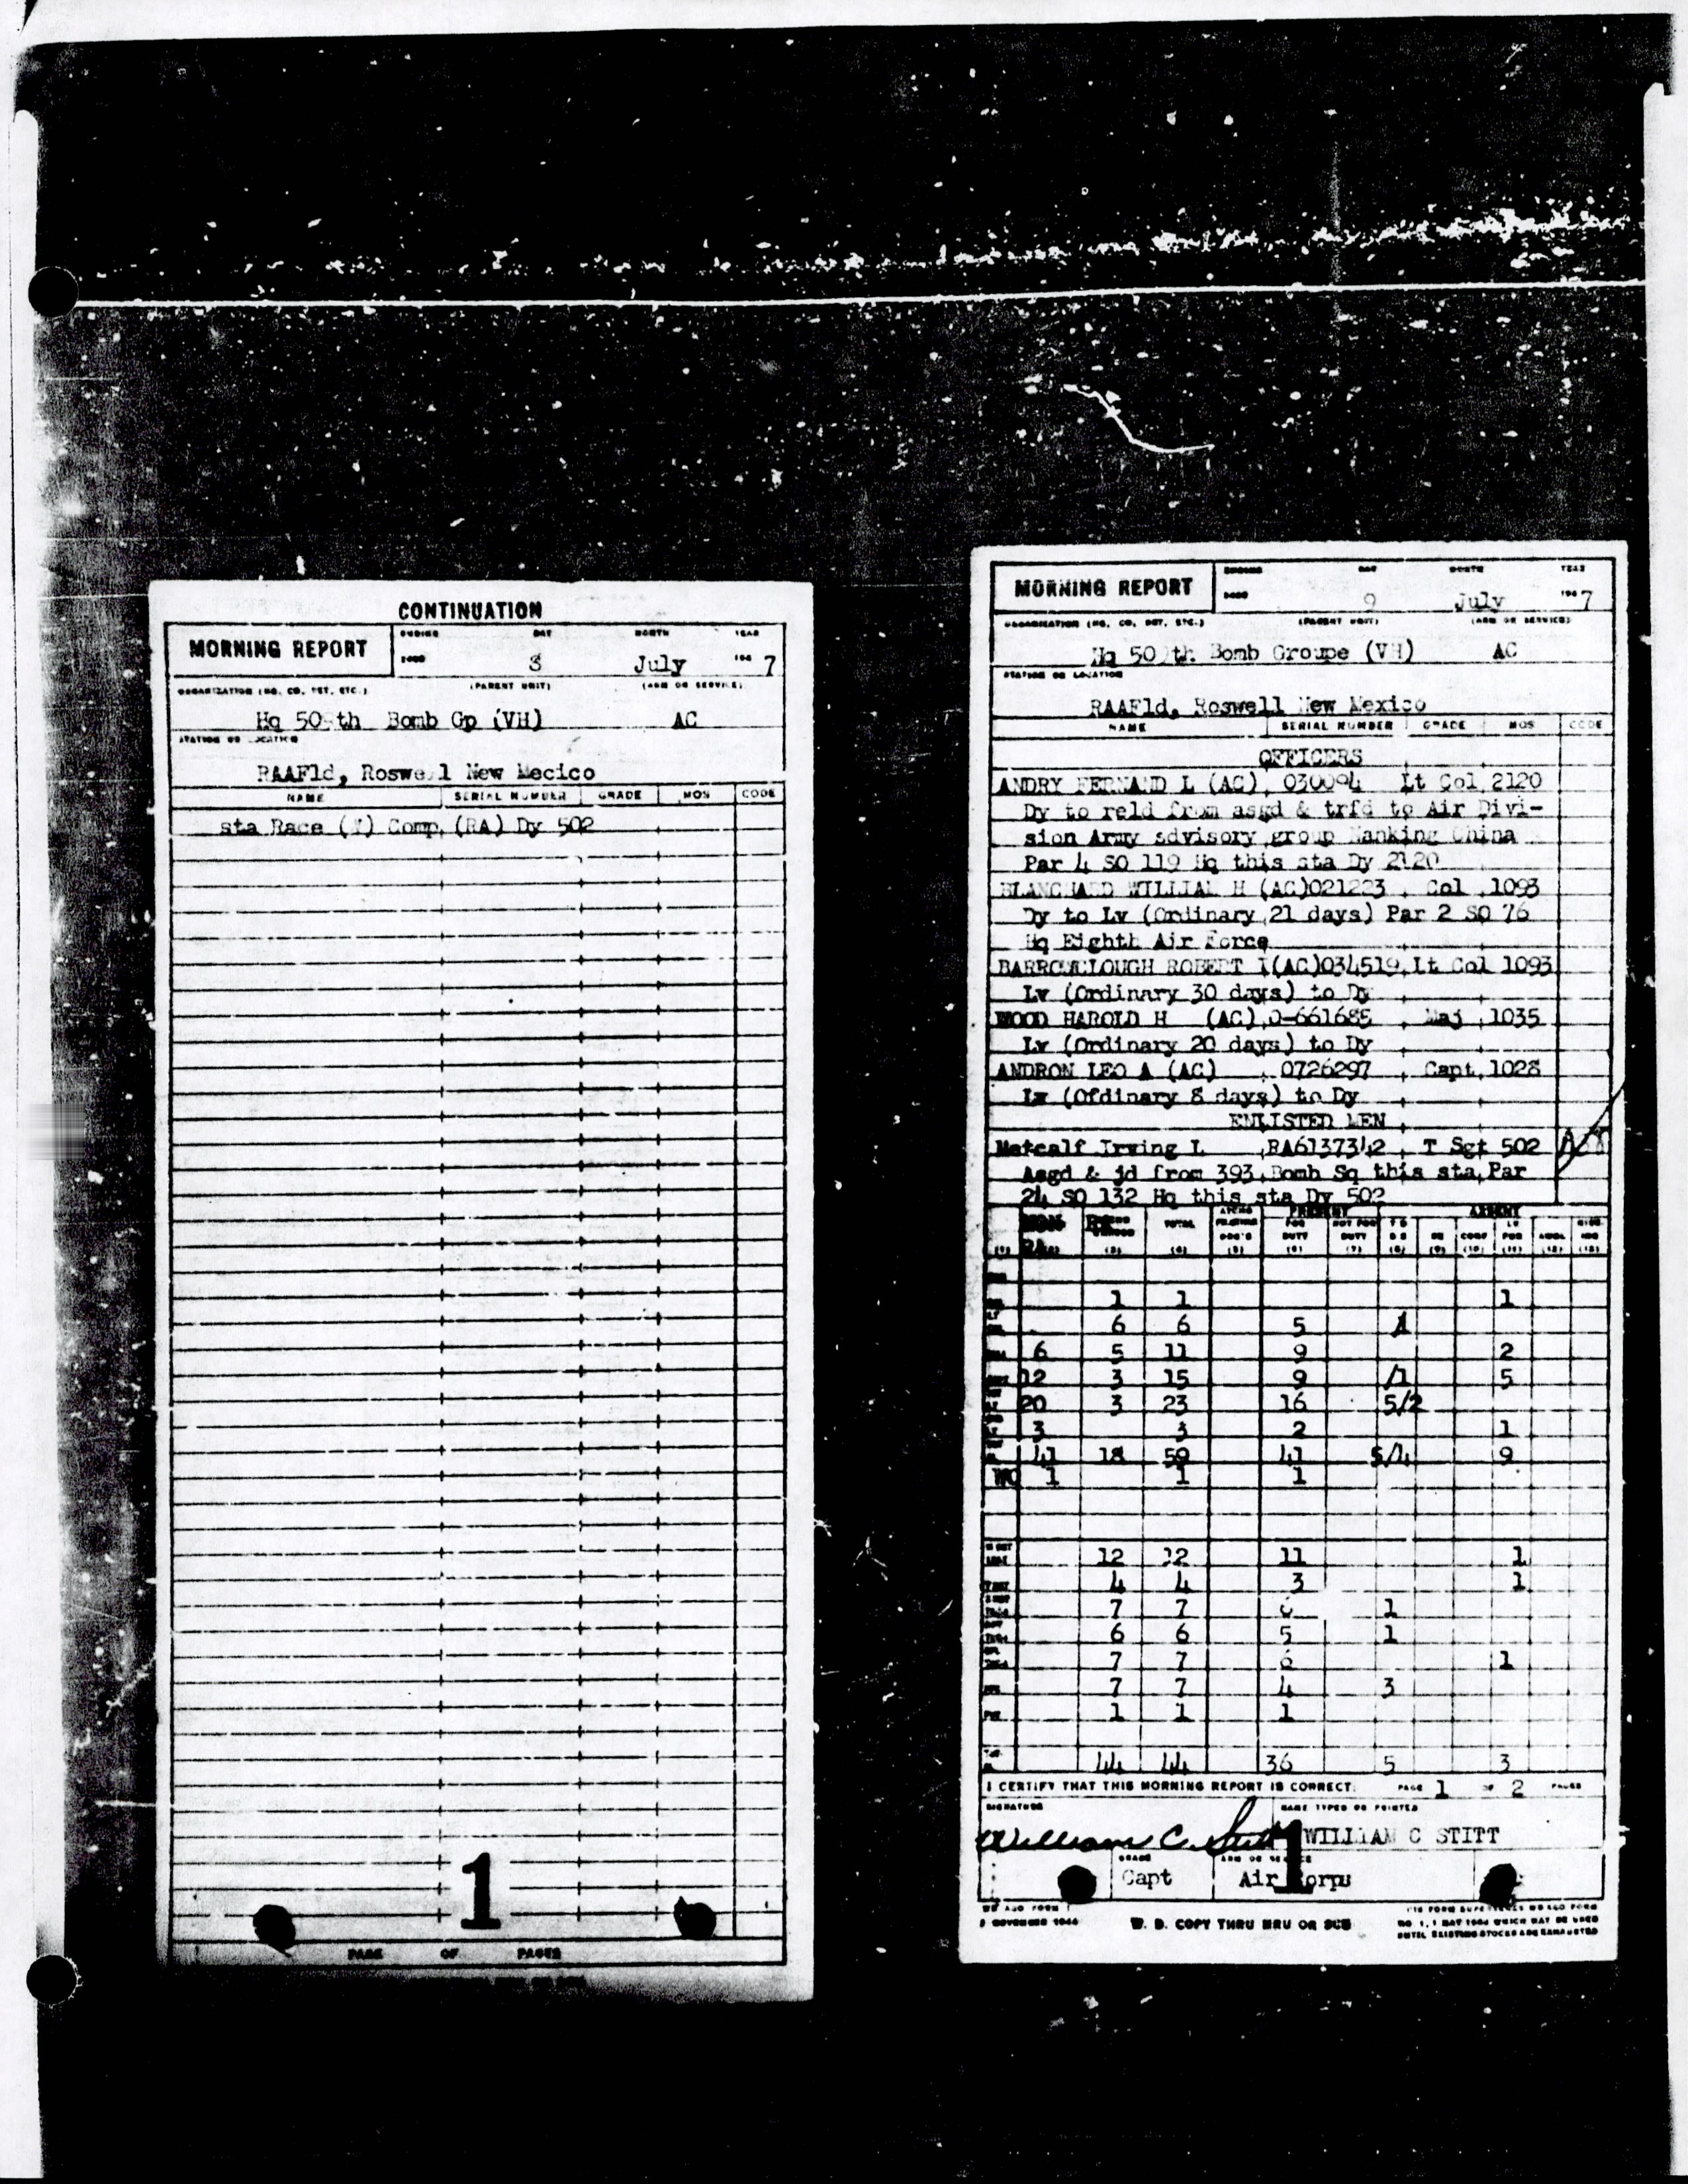 CONTINUATION
MORNING REPORT
ENDING DAY MONTH YEAR
8 July 194 7
ORGANIZATION (HQ. CO. DET. ETC.) (PARENT UNIT) (ARM OR SERVICE)
Hq 509th Bomb Gp (VH) AC
STATION OR LOCATION
RAAFld, Roswell New Mecico
NAME SERIAL NUMBER GRADE MOS CODE
sta Race (W) Comp (RA) Dy 502
1
PAGE OF PAGES
MORNING REPORT
ENDING DAY MONTH YEAR
9 July 194 7
ORGANIZATION (HQ. CO. DET. ETC.) (PARENT UNIT) (ARM OR SERVICE)
Hq 509th Bomb Groupe (VH) AC
STATION OR LOCATION
RAAFld, Roswell New Mexico
NAME SERIAL NUMBER GRADE MOS CODE
OFFICERS
ANDRY FERNAND L (AC) 030094 Lt Col 2120
Dy to reld from asgd & trfd to Air Divi-
sion Army sdvisory group Nanking China
Par 4 SO 119 Hq this sta Dy 2120
BLANCHARD WILLIAM H (AC)021223 Col 1093
Dy to Lv (Ordinary 21 days) Par 2 SO 76
Hq Eighth Air Force
BARROWCLOUGH ROBERT I(AC)034519 Lt Col 1093
Lv (Ordinary 30 days) to Dy
WOOD HAROLD H (AC) 0-661685 Maj 1035
Lv (Ordinary 20 days) to Dy
ANDRON LEO A (AC) 0726297 Capt 1028
Lv (Ofdinary 8 days) to Dy
ENLISTED MEN
Metcalf Irving L RA6137342 T Sgt 502
Asgd & jd from 393 Bomb Sq this sta Par
24 SO 132 Hq this sta Dy 502
PRESENT ABSENT
TOTAL
1 1 1
6 6 5 1
6 5 11 9 2
12 3 15 9 /1 5
20 3 23 16 5/2
3 3 2 1
41 18 59 41 5/4 9
WO 1 1 1
12 12 11 1
4 4 3 1
7 7 6 1
6 6 5 1
7 7 6 1
7 7 4 3
1 1 1
44 44 36 5 3
I CERTIFY THAT THIS MORNING REPORT IS CORRECT. PAGE 1 OF 2 PAGES
SIGNATURE NAME TYPED OR PRINTED
William C. Stitt WILLIAM C STITT
GRADE ARM OR SERVICE
Capt Air Corps
1
WD AGO FORM 1
W. D. COPY THRU MRU OR SCU
THIS FORM SUPERSEDES WD AGO FORM
NO. 1, 1 MAY 1944 WHICH MAY BE USED
UNTIL EXISTING STOCKS ARE EXHAUSTED